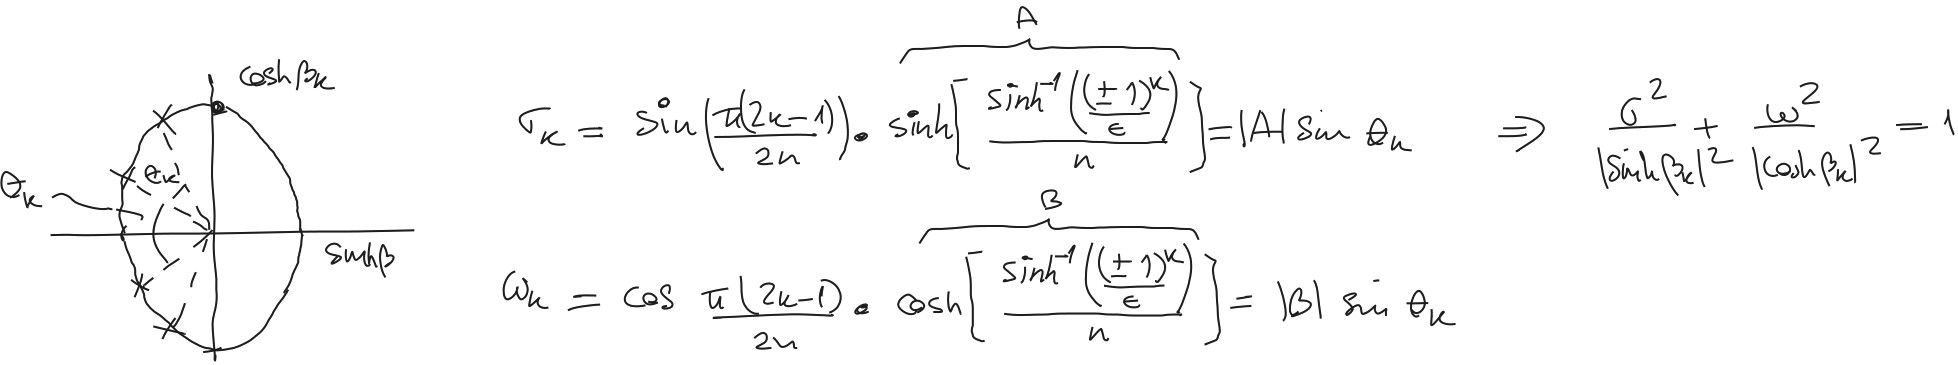 cosh βk
θk
θk
sinh β
A
σk = sin(π(2k-1)/2n) · sinh[sinh⁻¹((±1)^k/ϵ)/n] = |A| sin θk ⇒ σ²/|sinh βk|² + ω²/|cosh βk|² = 1
B
ωk = cos π(2k-1)/2n · cosh[sinh⁻¹((±1)^k/ϵ)/n] = |B| sin θk